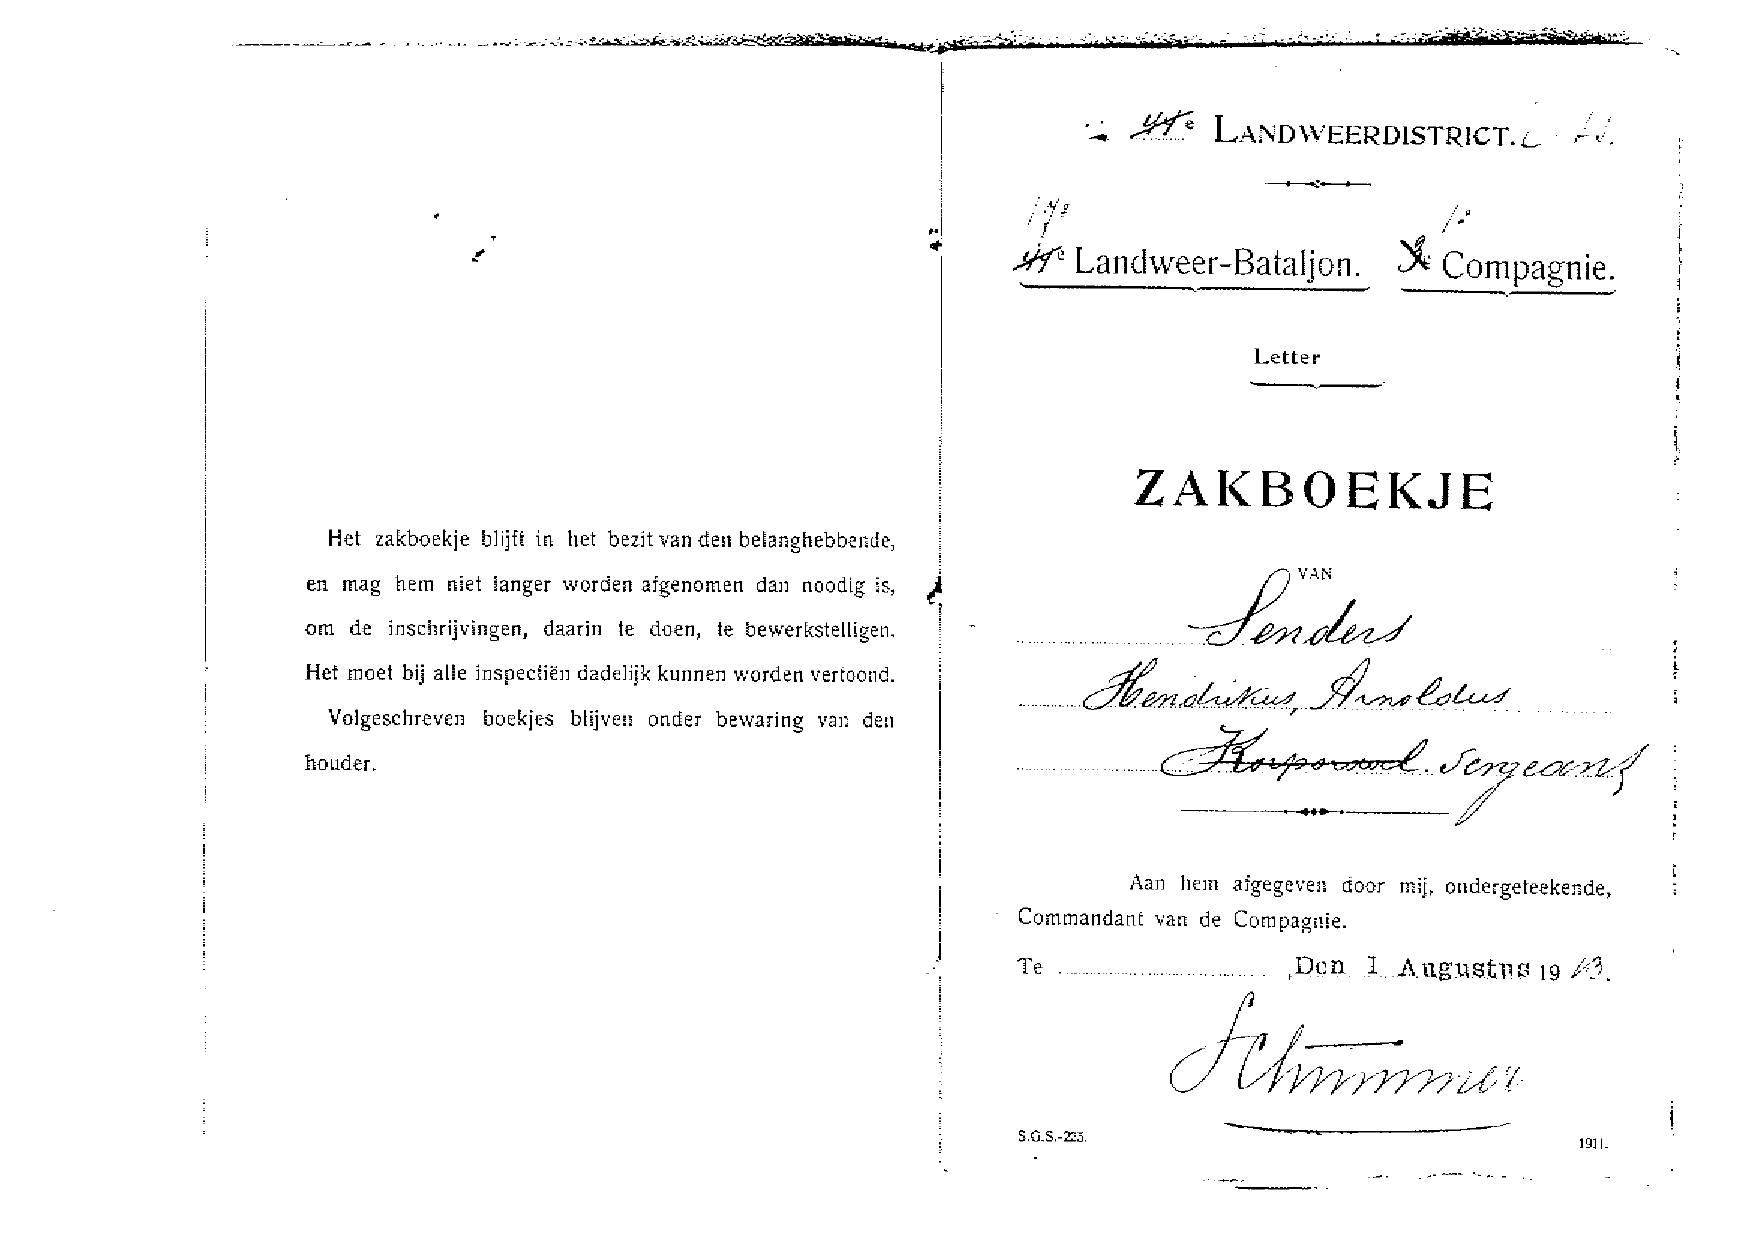 Het zakboekje blijft in het bezit van den belanghebbende,
en mag hem niet langer worden afgenomen dan noodig is,
om de inschrijvingen, daarin te doen, te bewerkstelligen.
Het moet bij alle inspectiën dadelijk kunnen worden vertoond.
Volgeschreven boekjes blijven onder bewaring van den
houder.
LANDWEERDISTRICT.
Landweer-Bataljon. Compagnie.
Letter
ZAKBOEKJE
VAN
Senders
Hendrikus, Arnoldus
Korporaal. Sergeant
Aan hem afgegeven door mij, ondergeteekende,
Commandant van de Compagnie.
Te , Den 1 Augustus 1913.
S.G.S.-225. 1911.